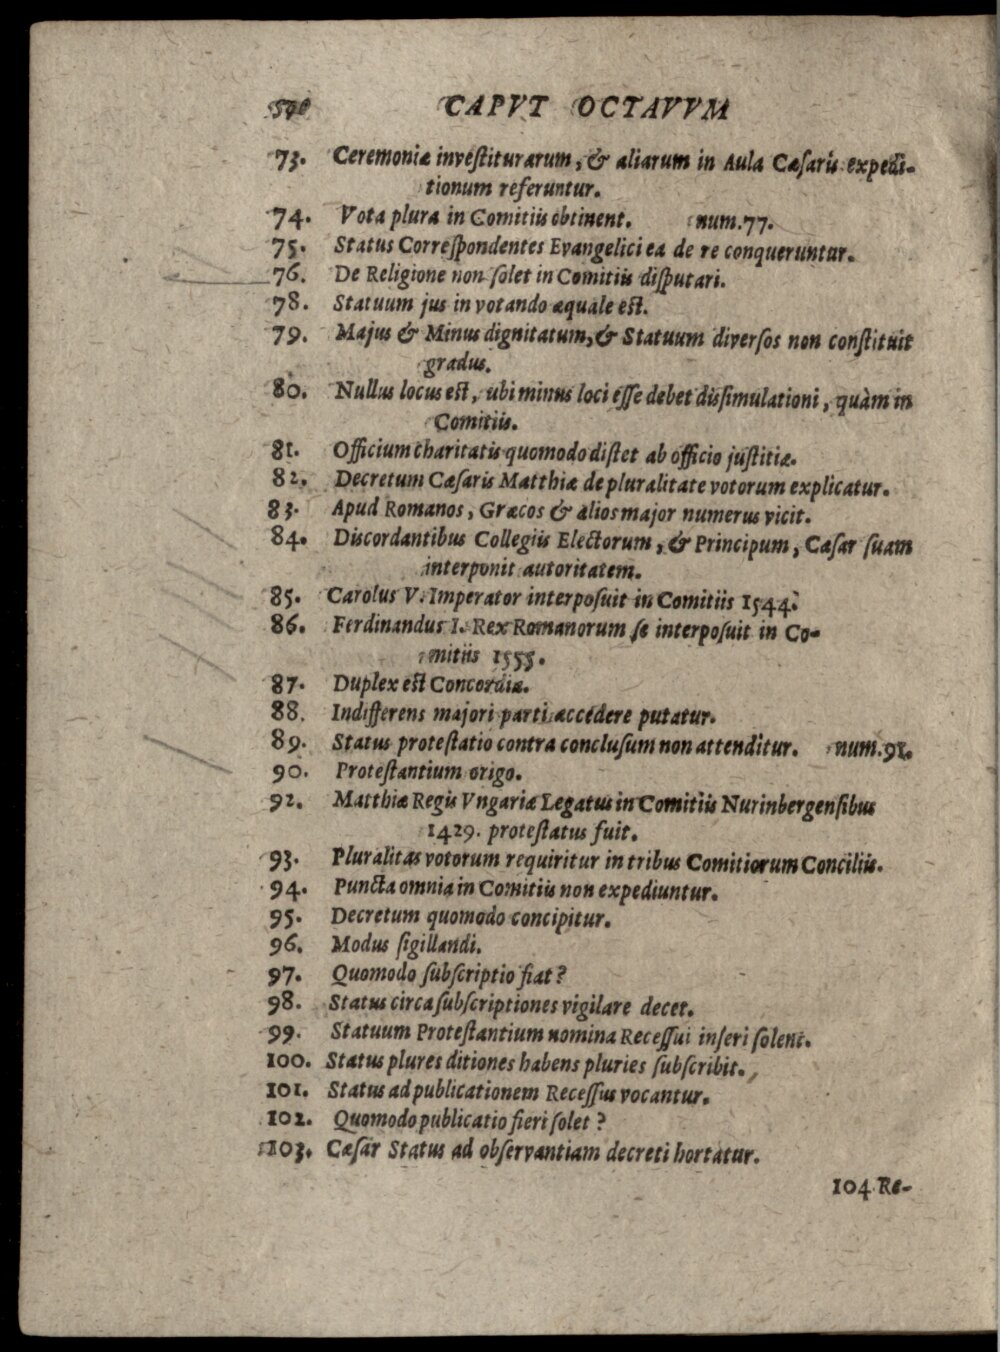 CAPVT OCTAVVM
73. Ceremoniæ investiturarum, & aliarum in Aula Cæsaris expedi-
tionum referuntur.
74. Vota plura in Comitiis obtinent. num. 77.
75. Status Correspondentes Evangelici ea de re conqueruntur.
76. De Religione non solet in Comitiis disputari.
78. Statuum jus in votando æquale est.
79. Majus & Minus dignitatum, & Statuum diversos non constituit
gradus.
80. Nullus locus est, ubi minus loci esse debet dissimulationi, quàm in
Comitiis.
81. Officium charitatis quomodo distet ab officio justitiæ.
82. Decretum Cæsaris Matthiæ de pluralitate votorum explicatur.
83. Apud Romanos, Græcos & alios major numerus vicit.
84. Discordantibus Collegiis Electorum, & Principum, Cæsar suam
interponit autoritatem.
85. Carolus V. Imperator interposuit in Comitiis 1544.
86. Ferdinandus I. Rex Romanorum se interposuit in Co-
mitiis 1555.
87. Duplex est Concordia.
88. Indifferens majori parti accedere putatur.
89. Status protestatio contra conclusum non attenditur. num. 91.
90. Protestantium origo.
92. Matthiæ Regis Vngariæ Legatus in Comitiis Nurinbergensibus
1429. protestatus fuit.
93. Pluralitas votorum requiritur in tribus Comitiorum Conciliis.
94. Puncta omnia in Comitiis non expediuntur.
95. Decretum quomodo concipitur.
96. Modus sigillandi.
97. Quomodo subscriptio fiat?
98. Status circa subscriptiones vigilare decet.
99. Statuum Protestantium nomina Recessui inseri solent.
100. Status plures ditiones habens pluries subscribit.
101. Status ad publicationem Recessus vocantur.
102. Quomodo publicatio fieri solet?
103. Cæsar Status ad observantiam decreti hortatur.
104 Re-